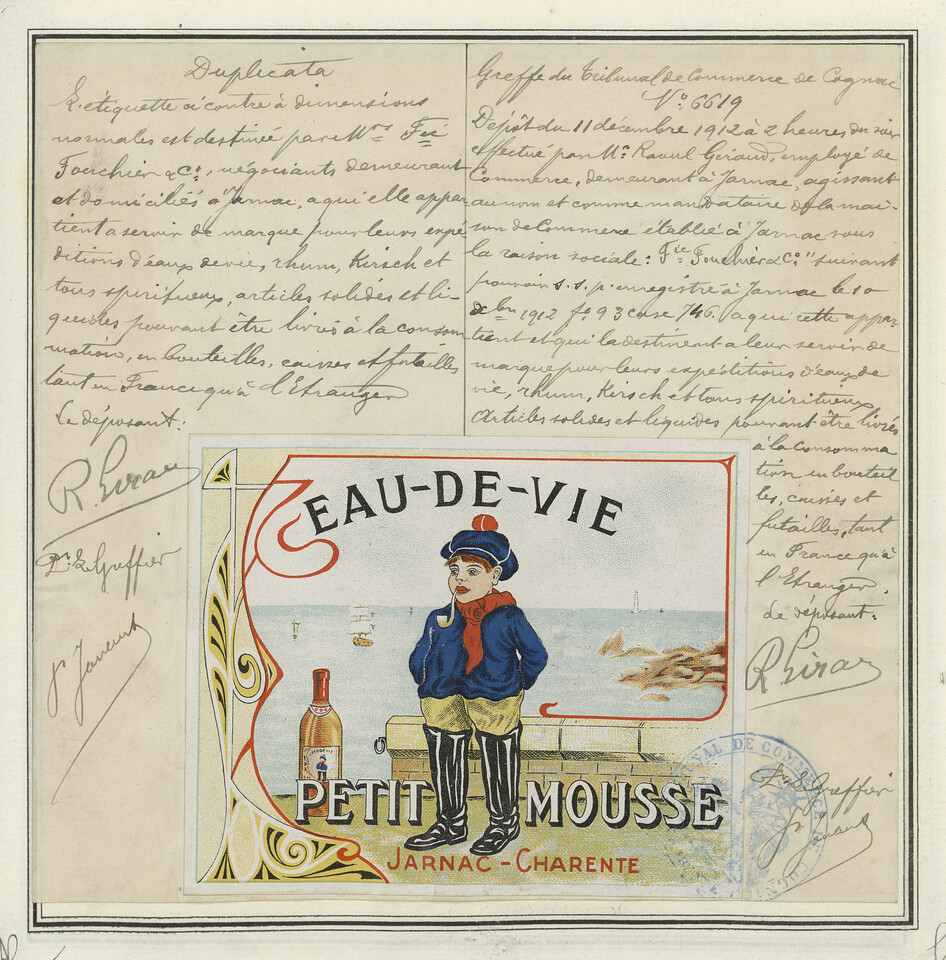 Duplicata
L'étiquette ci contre à dimensions
normales est destinée par Mrs Fic
Fouchier & Co, négociants demeurant
et domiciliés à Jarnac, a qui elle appar
tient a servir de marque pour leurs expé
ditions d'eaux de vie, rhum, Kirsch et
tous spiritueux, articles solides et li-
quides pouvant être livrés à la consom
mation, en bouteilles, caisses et futailles
tant en France qu'à l'Etranger
Le déposant:
R. Giraud
Le Greffier
Greffe du Tribunal de Commerce de Cognac
No 6619
Dépôt du 11 décembre 1912 à 2 heures du soir
effectué par Mr Raoul Giraud, employé de
Commerce, demeurant à Jarnac, agissant
au nom et comme mandataire de la mai-
son de Commerce établie à Jarnac sous
la raison sociale: "Fic Fouchier & Co" suivant
pouvoir s. s. p. enregistré à Jarnac le 10
dcbre 1912 fo 93 case 746. a qui cette appar-
tient et qui la destinent a leur servir de
marque pour leurs expéditions d'eaux de
vie, rhum, Kirsch et tous spiritueux
Articles solides et liquides pouvant être livrés
à la consomma
tion en bouteil
les, caisses et
futailles, tant
en France qu'à
l'Etranger.
Le déposant:
R. Giraud
Le Greffier
EAU-DE-VIE
PETIT MOUSSE
JARNAC-CHARENTE
TRIBUNAL DE COMMERCE